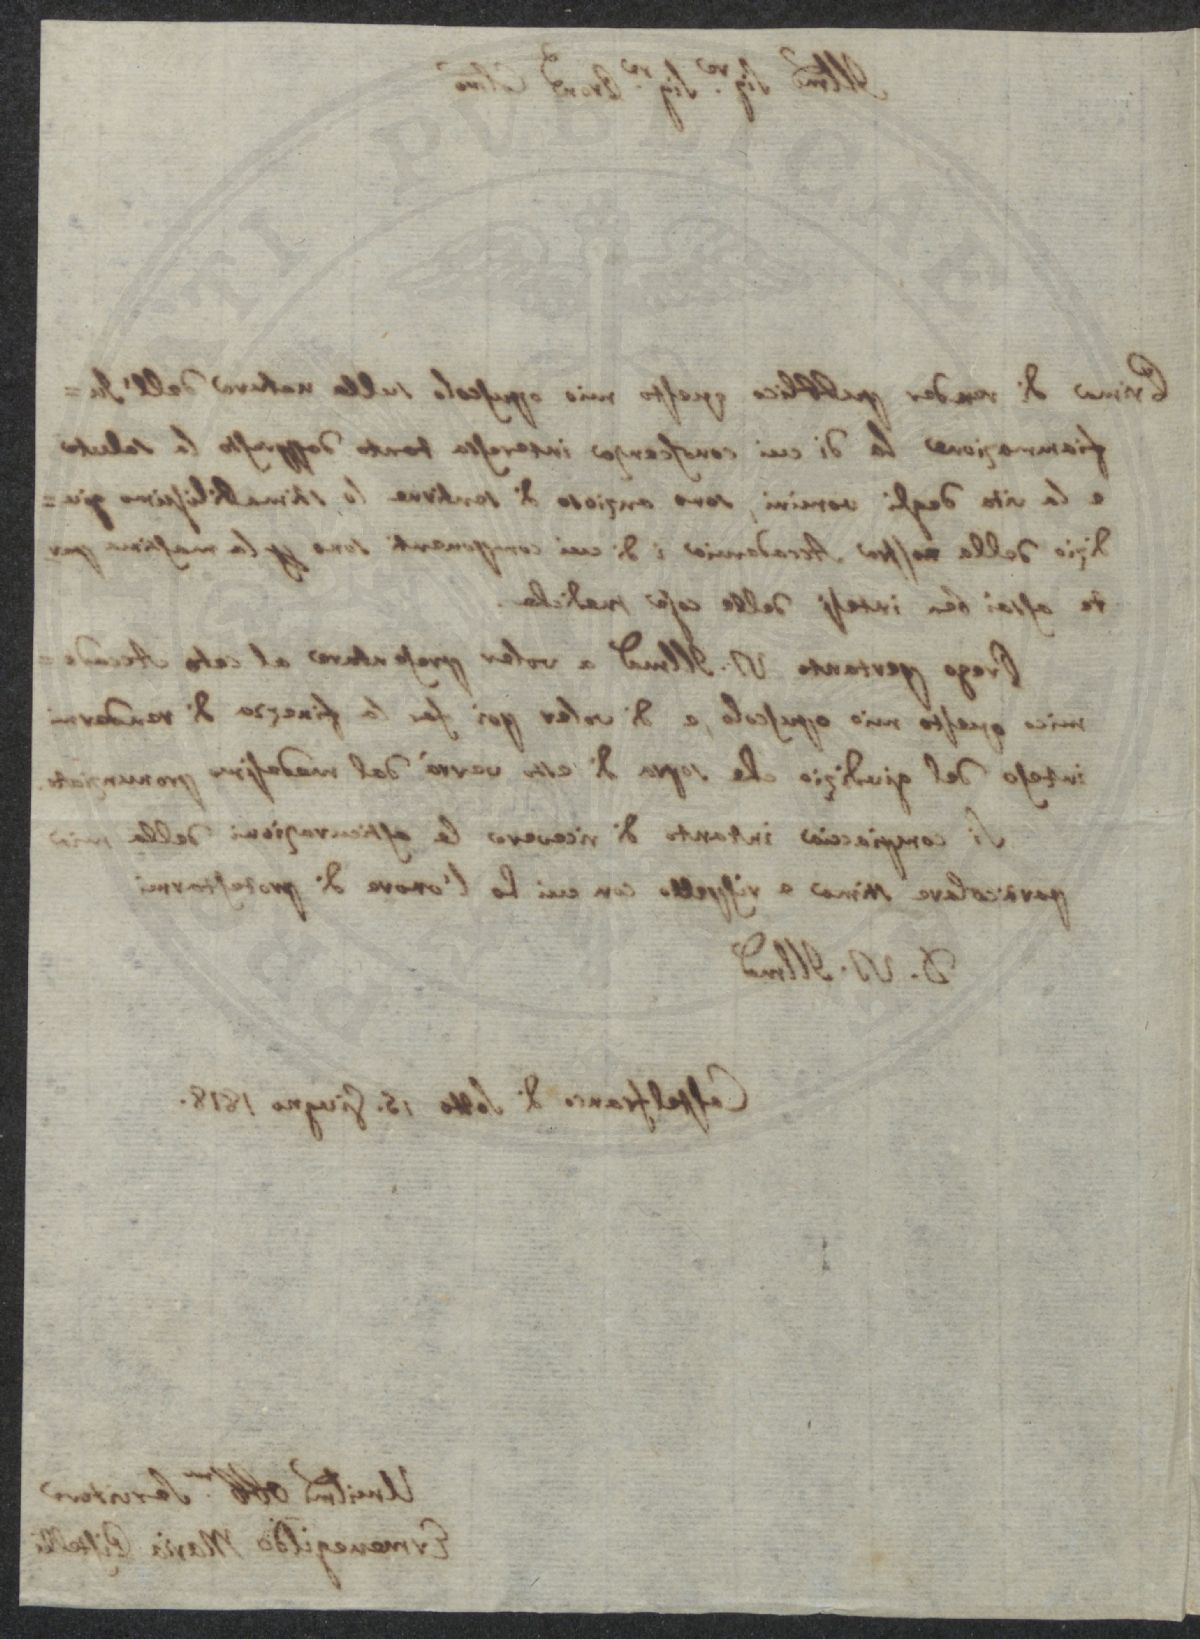 Illmo Sigre. Sigre. Prone Colmo
Prima di render pubblico questo mio opuscolo sulla natura dell'In=
fiammazione la di cui conoscenza interessa tanto dappresso la salute
e la vita degli uomini, sono anzioso di sentirne lo stimabilissimo giu=
dizio della nostra Accademia i di cui componenti sono p la massima par
te assai ben intesi delle cose mediche.
Prego pertanto V. Illma a voler presentare al ceto Accade=
mico questo mio opuscolo, e di voler poi far la finezza di rendermi
inteso del giudizio che sopra d'esso verrà dal medesimo pronunziato.
Si compiaccia intanto di ricevere le assicurazioni della mia
particolare stima e rispetto con cui ho l'onore di protestarmi
D. V. Illma
Castelfranco di Sotto 15. Giugno 1818.
Umilmo Obbmo. Servitore
Ermenegildo Maria Pistelli
PUBLICAE